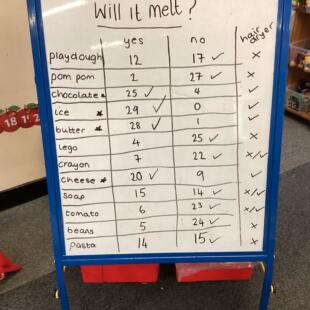 Will it melt?
yes no hair dryer
playdough 12 17 ✓ ×
pom pom 2 27 ✓ ×
chocolate* 25 ✓ 4 ✓
ice * 29 ✓ 0 ✓
butter * 28 ✓ 1 ✓
lego 4 25 ✓ ×
crayon 7 22 ✓ ×/✓
cheese * 20 ✓ 9 ✓
soap 15 14 ✓ ×/✓
tomato 6 23 ✓ ×/✓
beans 5 24 ✓ ×
pasta 14 15 ✓ ×